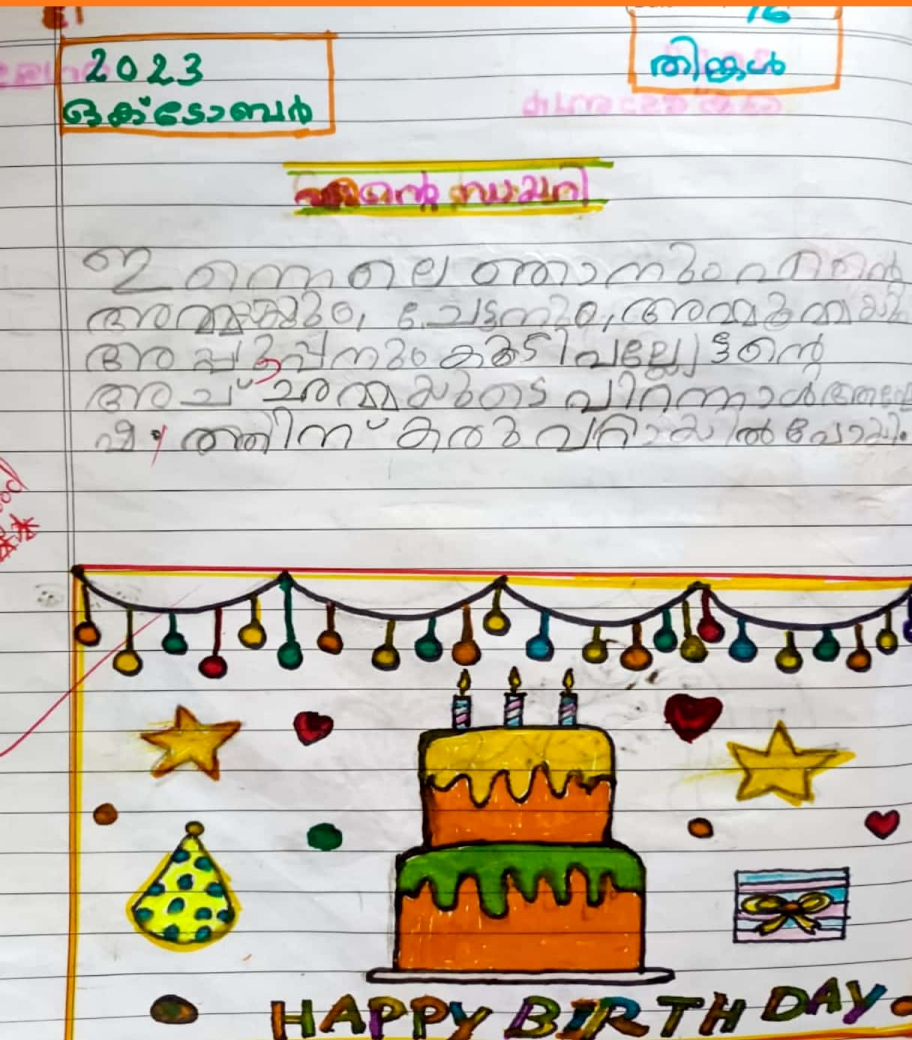 16
2023
തിങ്കൾ
ഒക്ടോബർ
എന്റെ ഡയറി
ഇന്നെലെ ഞാനും എന്റെ
അമ്മയും, ചേട്ടനും, അമ്മുമ്മയും
അപ്പൂപ്പനും കൂടി പല്ലേട്ടന്റെ
അച്ചമ്മയുടെ പിറന്നാൾ
ത്തിന് കരുവറ്റായിൽ പോയി.
HAPPY BIRTH DAY